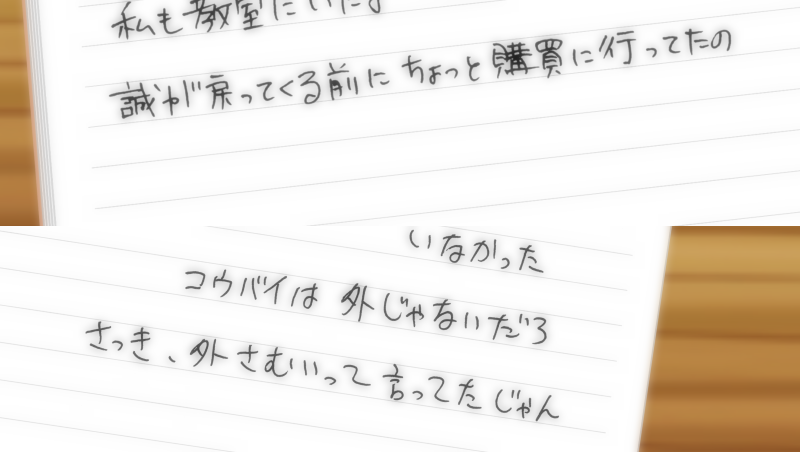 私も教室にいたよ
誠が戻ってくる前にちょっと購買に行ってたの
いなかった
コウバイは外じゃないだろ
さっき、外さむいって言ってたじゃん